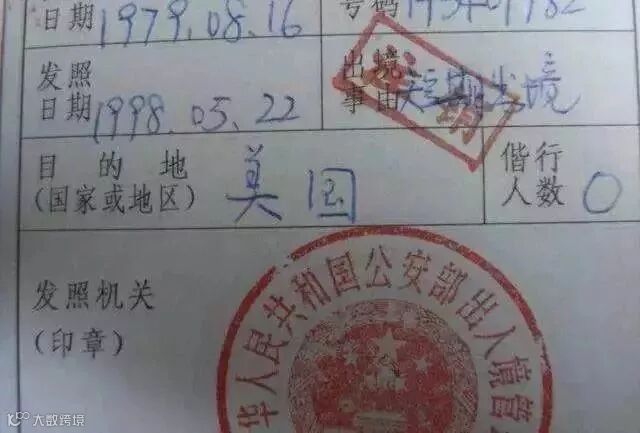 日期 1979.08.16
号码
发照日期 1998.05.22
出境事由 短期出境
目的地(国家或地区) 美国
偕行人数 0
发照机关(印章)
华人民共和国公安部出入境管
大数跨境